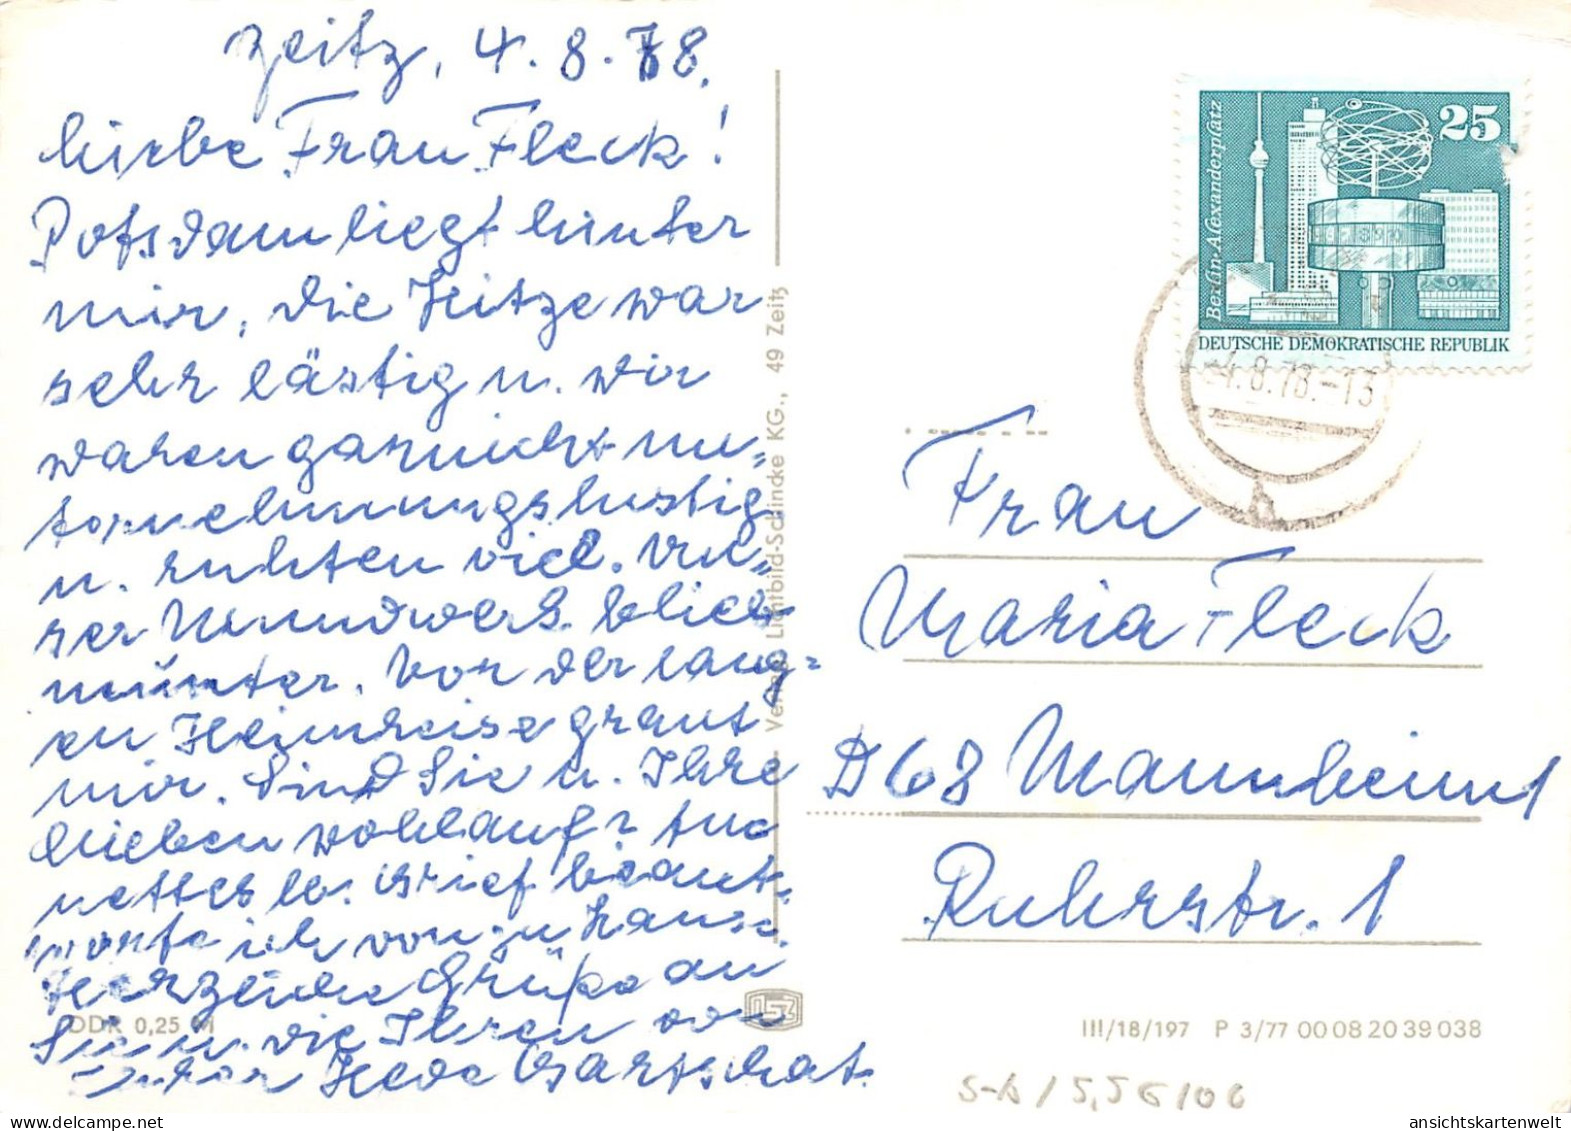 Zeitz, 4.8.78.
Liebe Frau Fleck!
Potsdam liegt hinter
mir, die Hitze war
sehr lästig u. wir
waren garnicht un„
ternehmungslustig
u. ruhten viel. Un„
ser Mundwerk blieb
munter. Vor der lang=
en Heimreise graut
mir. Sind Sie u. Ihre
Lieben wohlauf? Ihr
nettes lb. Brief beant-
worte ich von zu Hause.
Herzliche Grüße an
Sie u. die Ihren von
Ihrer Hede Gartschat.
DDR 0,25 M
Verlag Lichtbild-Schincke KG., 49 Zeitz
25
Berlin-Alexanderplatz
DEUTSCHE DEMOKRATISCHE REPUBLIK
-4.8.78.-13
Frau
Maria Fleck
D 68 Mannheim 1
Ruhrstr. 1
III/18/197 P 3/77 00 08 20 39 038
ansichtskartenwelt